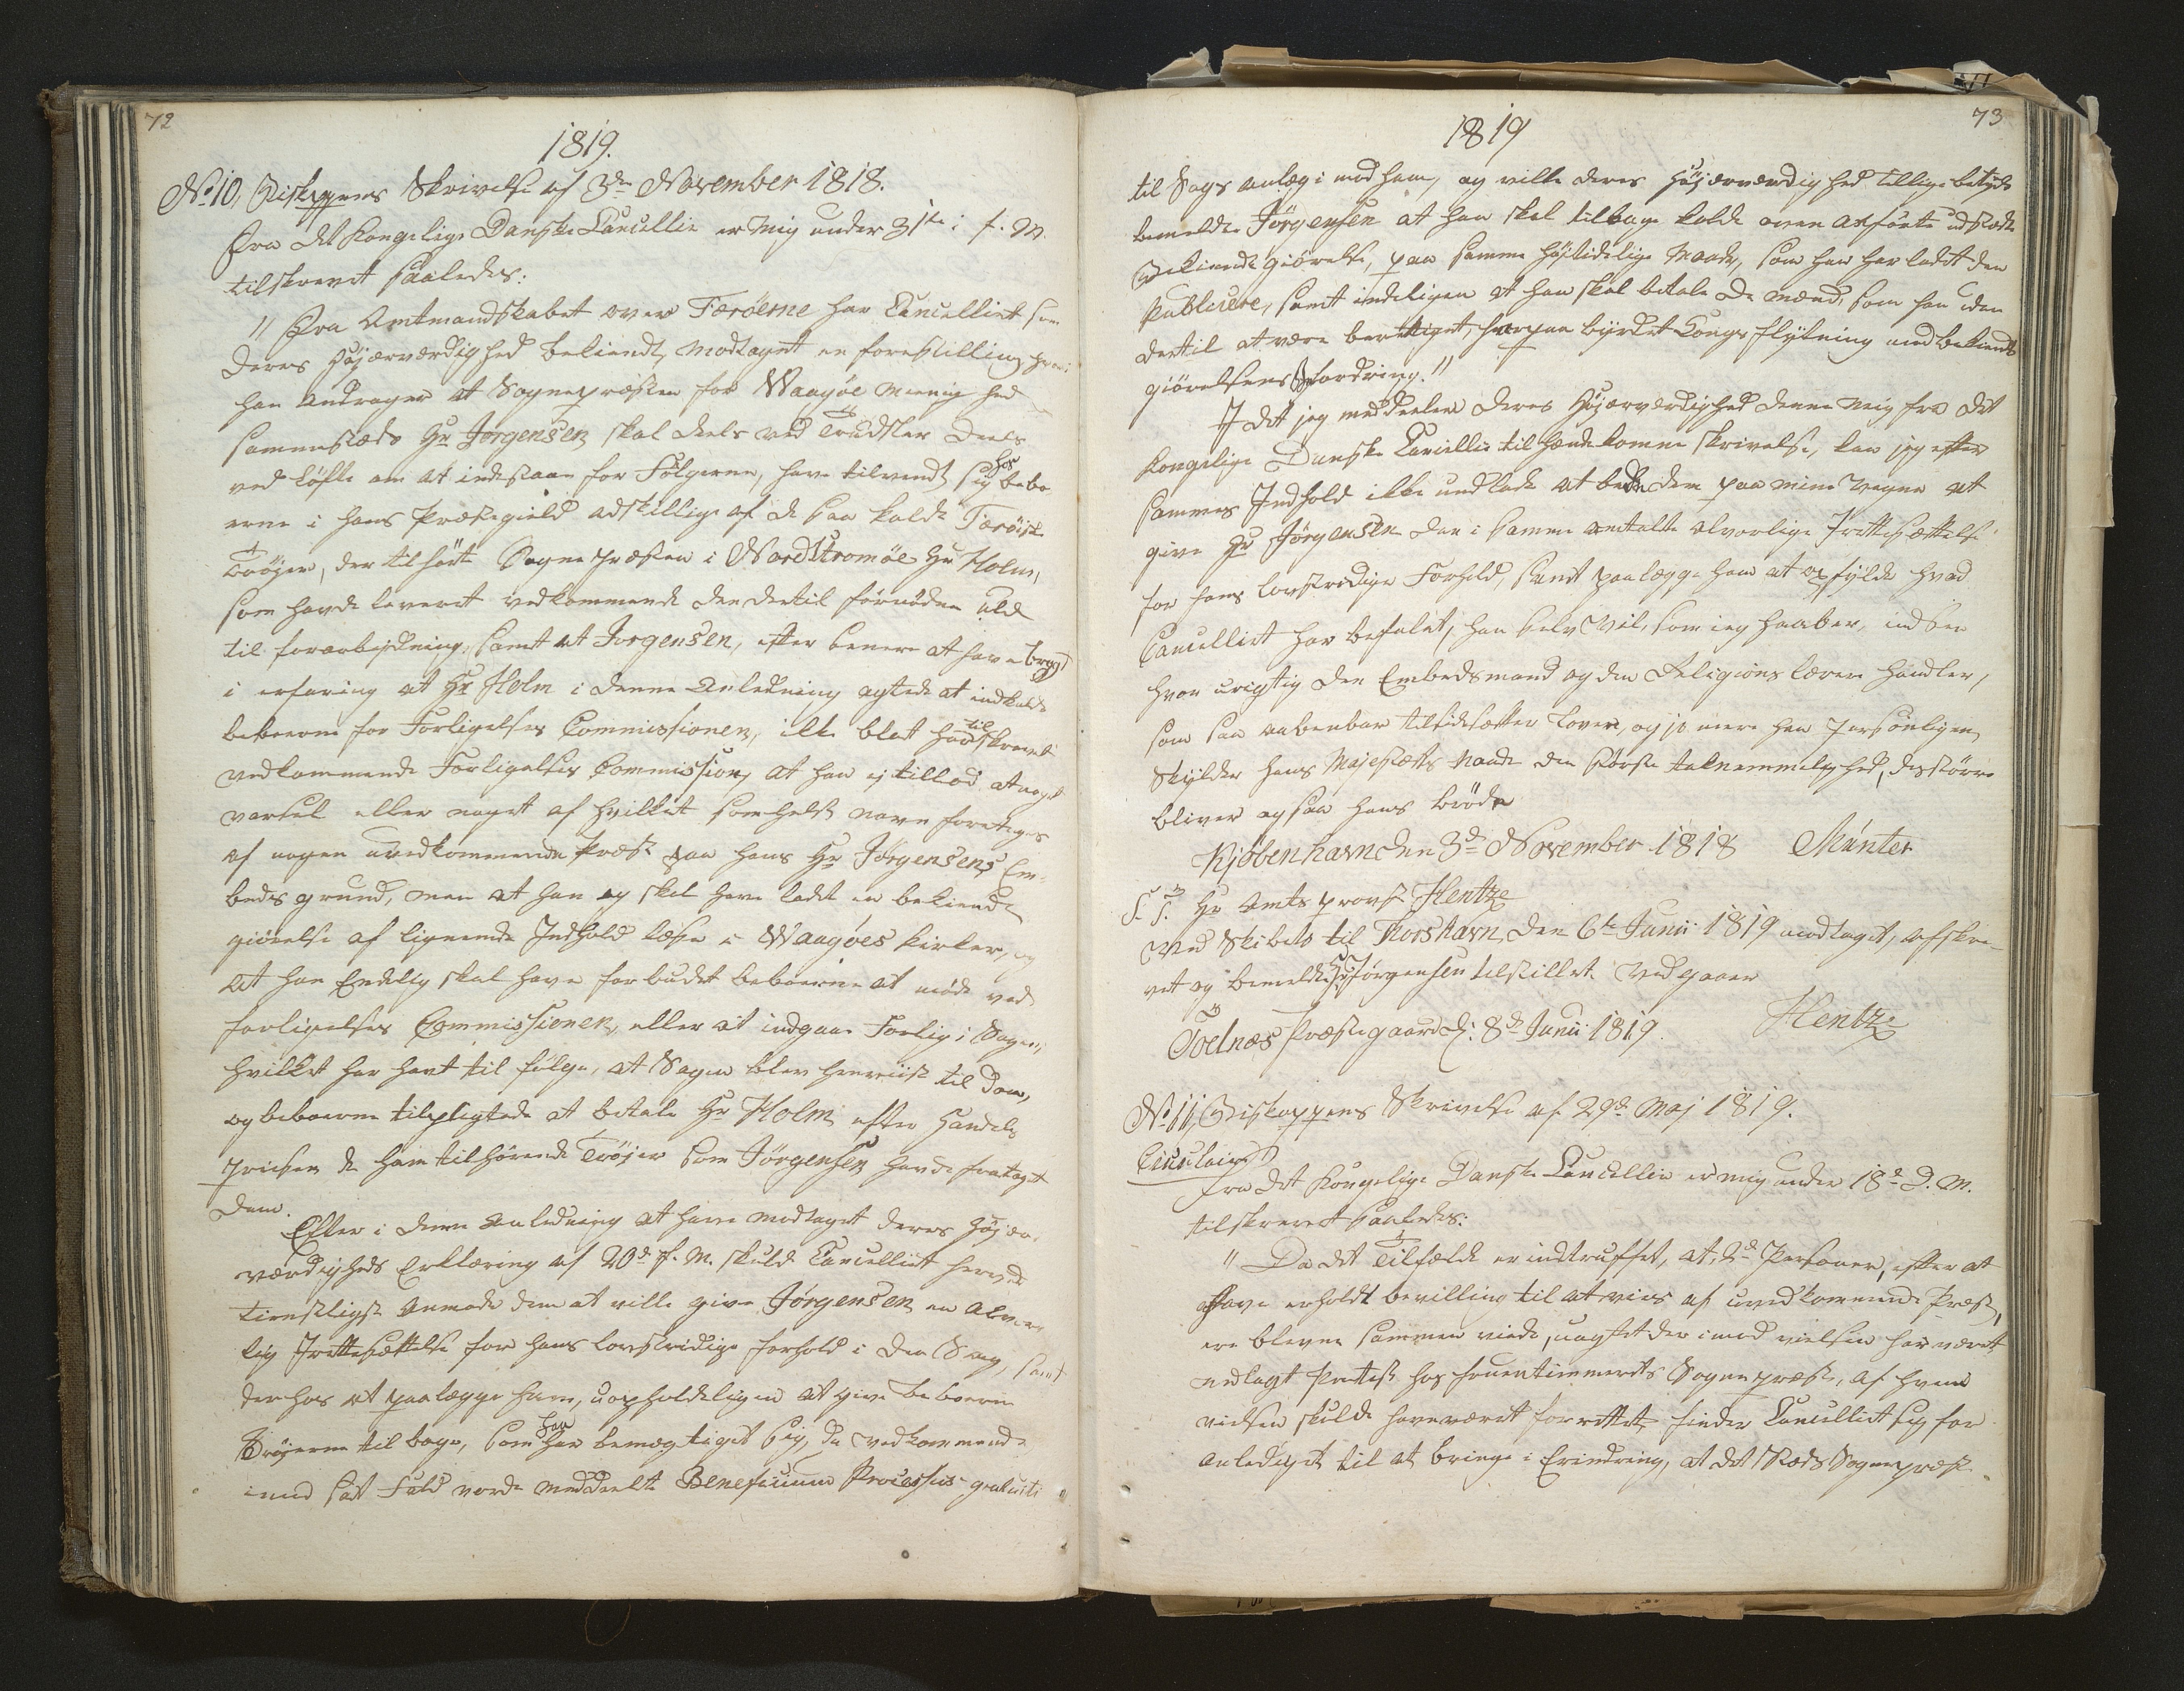 72
1819.
No 10, Biskoppens Skrivelse af 3de November 1818.
Fra det Kongelige Danske Cancellie er mig under 31te i f. M.
tilskrevet saaledes:
"Fra Amtmandskabet over Færöerne har Cancelliet som
Deres Höjærværdighed bekiendt, modtaget en forestilling hvori
han andrager at Sognepræsten for Waagöe Menighed
sammestæds Hr Jörgensen skal deels ved Trudsler deels
ved Löfte om at indestaae for Fölgerne, have tilvendt sig hos bebo
erne i hans Præstegield adskillige af de saa kaldte Færöiske
Tröjer, der tilhörte Sognepræsten i Nordströmöe Hr Holm,
som havde leveret vedkommende den dertil fornödne Uld
til forarbejdning, samt at Jörgensen, efter senere at have bragt
i erfaring at Hr Holm i denne Anledning agtede at indkalde
beboerne for Forligelses Commissionen, ikke blot har tilskrevet
vedkommende Forligelses Commission, at han ej tillod at noget
varsel eller noget af hvilket somhelst navn foretages
af nogen uvedkommende Præst paa hans Hr Jörgensens Em-
beds grund, men at han og skal have ladet en bekiendt
giörelse af lignende Indhold læse i Waagöes Kirker, og
at han Endelig skal have forbudet beboerne at möde ved
forligelses Commissionen, eller at indgaae Forlig i Sagen,
hvilket har havt til fölge, at Sagen blev henviist til Dom,
og beboerne tilpligtede at betale Hr Holm efter Handels
prisen de ham tilhörende Tröjer som Jörgensen havde frataget
dem.
Efter i denne Anledning at have modtaget Deres Höjær-
værdigheds Erklæring af 20de f. M. skulde Cancelliet herved
tienstligst anmode dem at ville give Jörgensen en Alvor
lig Irettesættelse for hans lovstridige forhold i den Sag, samt
derhos at paalægge ham, uopholdeligen at give beboerne
Tröjerne tilbage, som han har bemægtiget sig, da vedkommende
i mod sat Fald vorde meddeelt Beneficium Processus gratuiti
73
1819
til Sags anlæg imod ham, og ville Deres Höjærværdighed tillige betyde
bemeldte Jörgensen at han skal tilbage kalde oven anförte udstædte
Bekiendtgiörelse, paa samme höjtidelige Maade, som han har ladet den
publicere, samt endeligen at han skal betale de Mænd, som han uden
dertil at være berettiget, har paa byrdet Kongs flytning med bekiendt
giörelsens befordring."
I det jeg meddeeler Deres Höjærværdighed denne mig fra det
Kongelige Danske Cancellie tilhænde komne skrivelse, kan jeg efter
sammes Indhold ikke undlade at bede dem paa mine Vegne at
give Hr Jörgensen den i samme omtalte alvorlige Irettesættelse
for hans lovstridige Forhold, samt paalægge ham at opfylde hvad
Cancelliet har befalet, han selv vil, som jeg haaber, indsee
hvor urigtig den Embedsmand og den Religions lærer handler,
som saa aabenbar tilsidesætter Loven, og jo mere han personligen
skylder Hans Majestæts Naade den störste taknemmelighed, desstörre
bliver ogsaa hans Bröde
Kjöbenhavn den 3de November 1818 Münter
S. T. Hr Amts provst Hentze
Med Skibet til Thorshavn, den 6te Junii 1819 modtaget, afskre-
vet og bemeldte Hr Jörgensen tilstillet Vedgaaer
Qvelnæs Præstegaard d: 8de Junii 1819. Hentze
No 11, Biskoppens Skrivelse af 29de Maj 1819.
Circulaire
Fra det Kongelige Danske Cancellie er mig under 18de D. M.
tilskrevet saaledes:
"Da det Tilfælde er indtruffet, at 2de Personer, efter at
have erholdt bevilling til at vies af uvedkommende Præst,
ere blevne sammen viede, uagtet der imod vielsen har været
nedlagt Protest hos fruentimmerets Sognepræst, af hvem
vielsen skulde have været forrettet, finder Cancelliet sig for
anlediget til at bringe i Erindring, at det Stæds Sognepræst